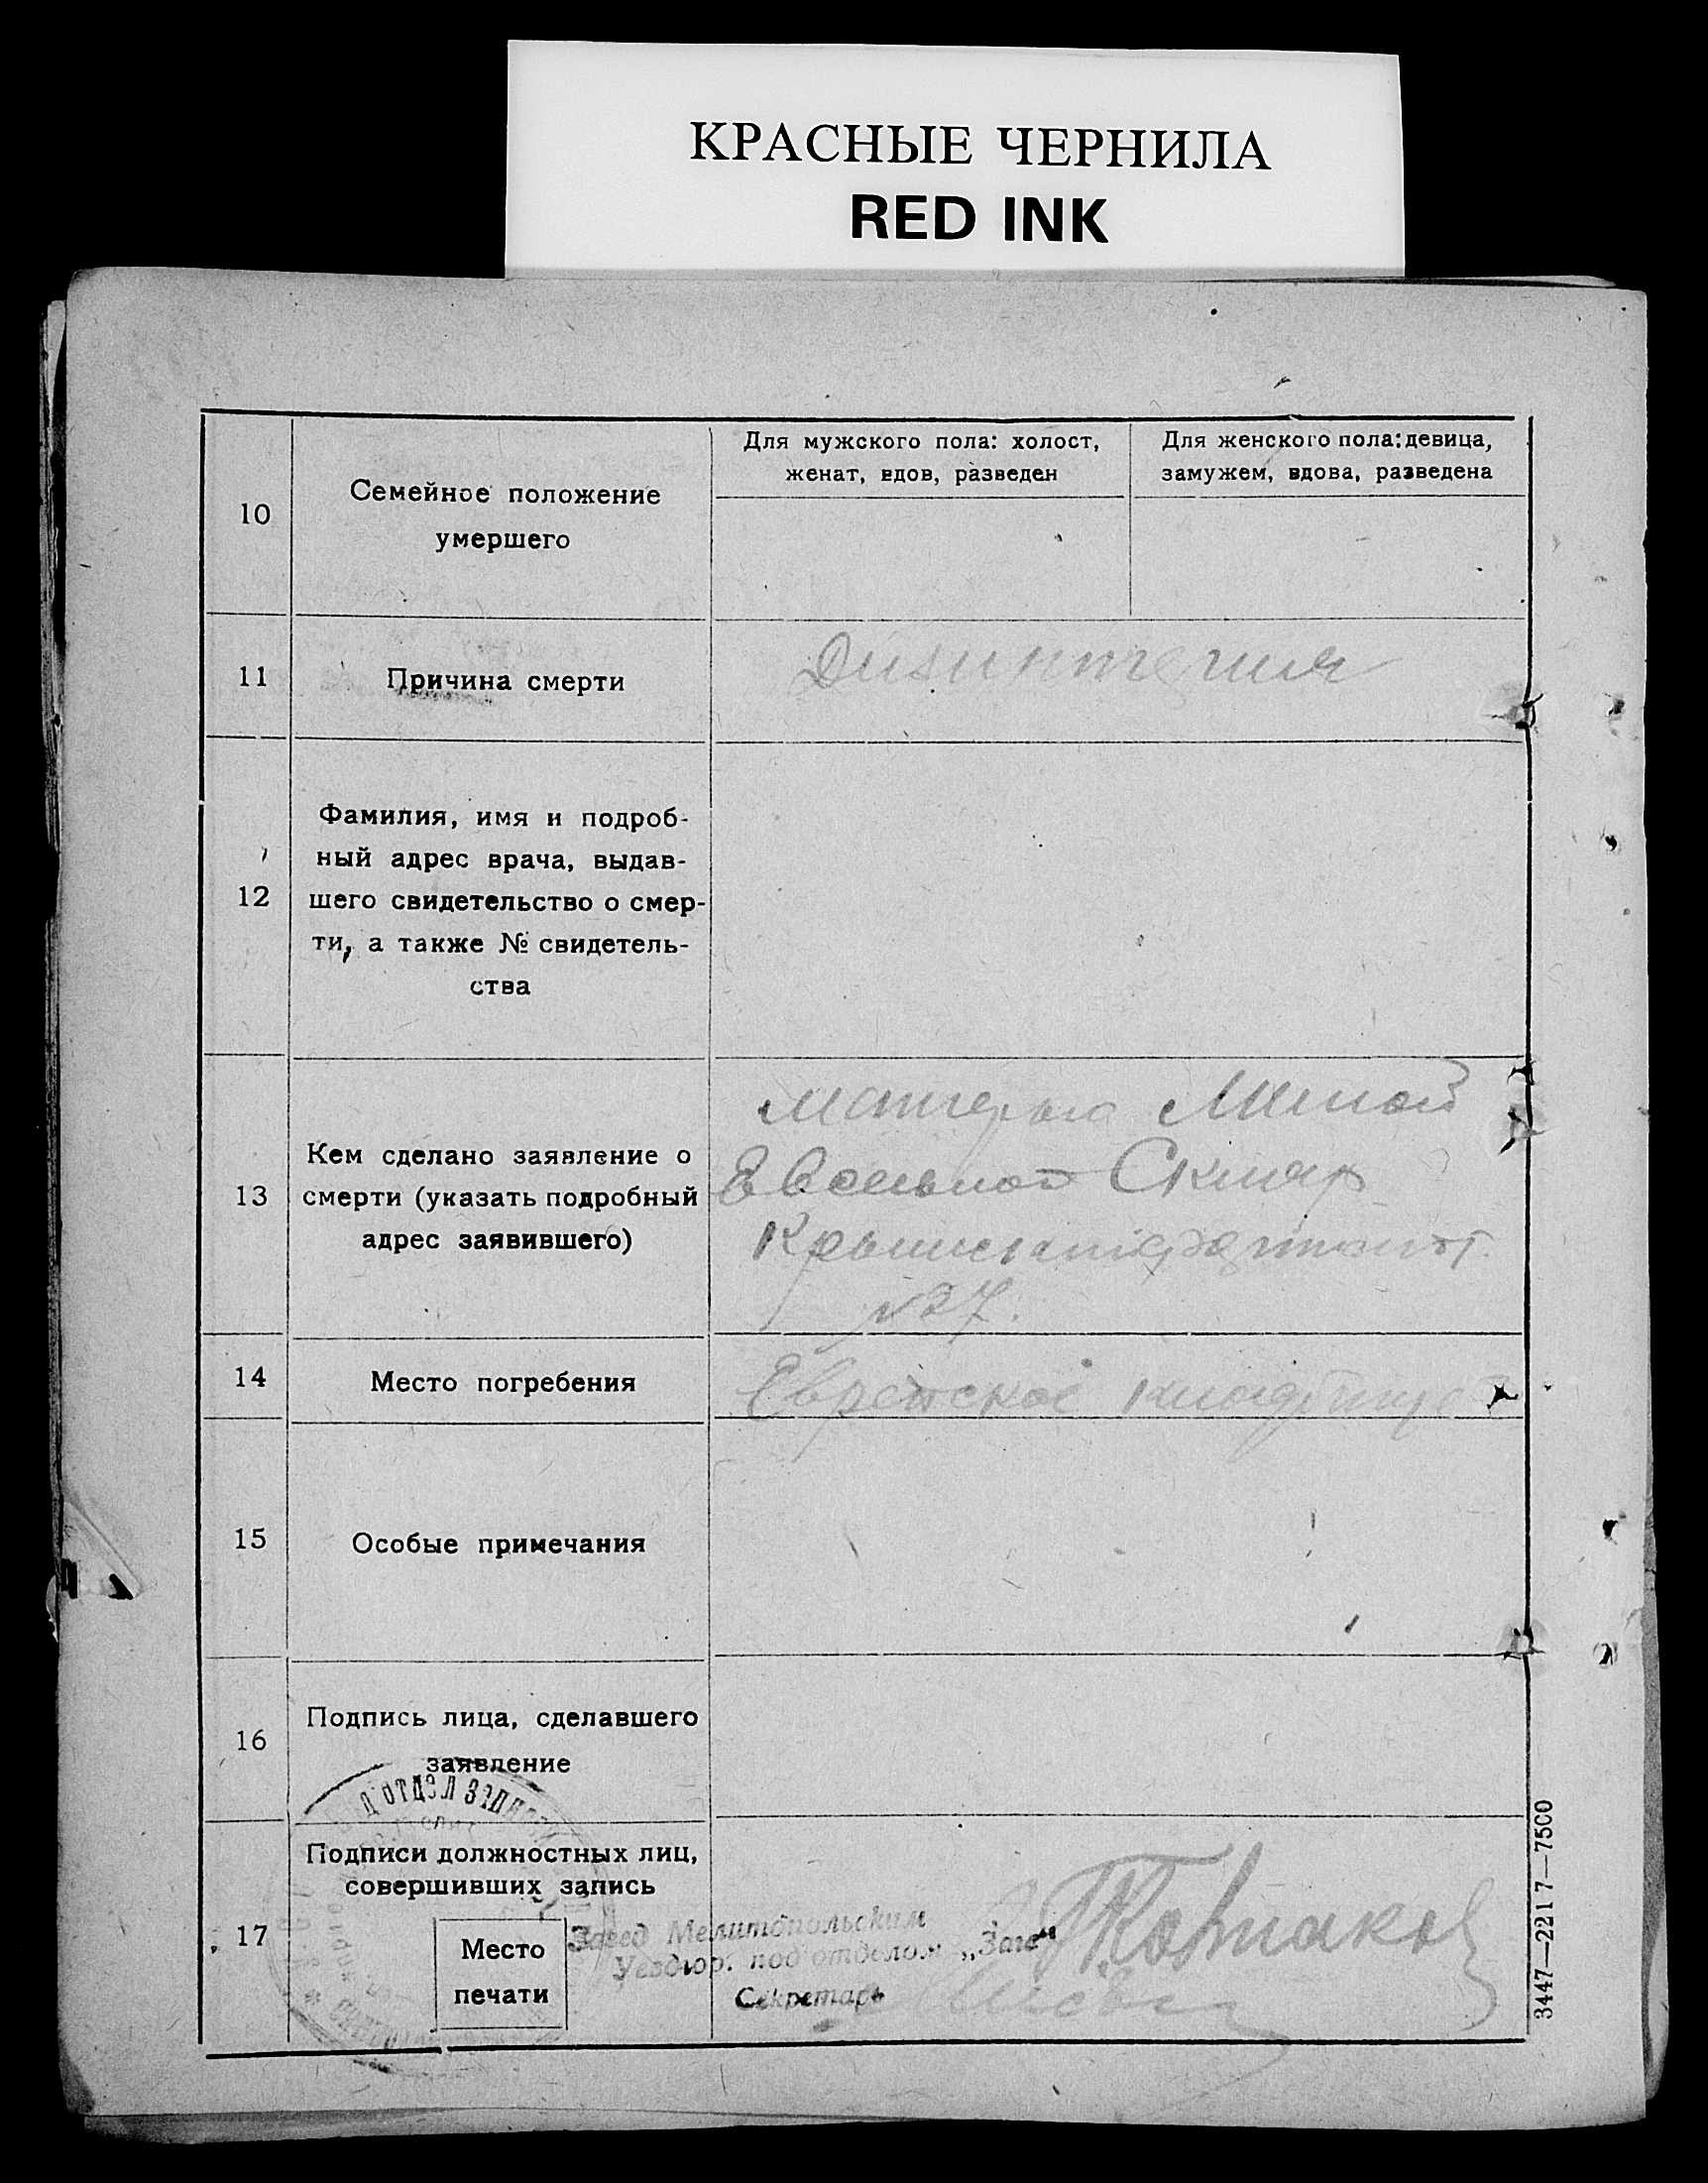 КРАСНЫЕ ЧЕРНИЛА
RED INK
10
Семейное положение
умершего
Для мужского пола: холост,
женат, вдов, разведен
Для женского пола: девица,
замужем, вдова, разведена
11
Причина смерти
Дизинтерия
12
Фамилия, имя и подроб-
ный адрес врача, выдав-
шего свидетельство о смер-
ти, а также № свидетель-
ства
13
Кем сделано заявление о
смерти (указать подробный
адрес заявившего)
Матерью
Скляр
№ 37.
14
Место погребения
Еврейское кладбище
15
Особые примечания
16
Подпись лица, сделавшего
заявление
17
Подписи должностных лиц,
совершивших запись
Место
печати
ОТДЕЛ ЗАПИСИ
Завед Мелитопольским
под'отделом „Загс"
Секретарь
3447—2217—7500